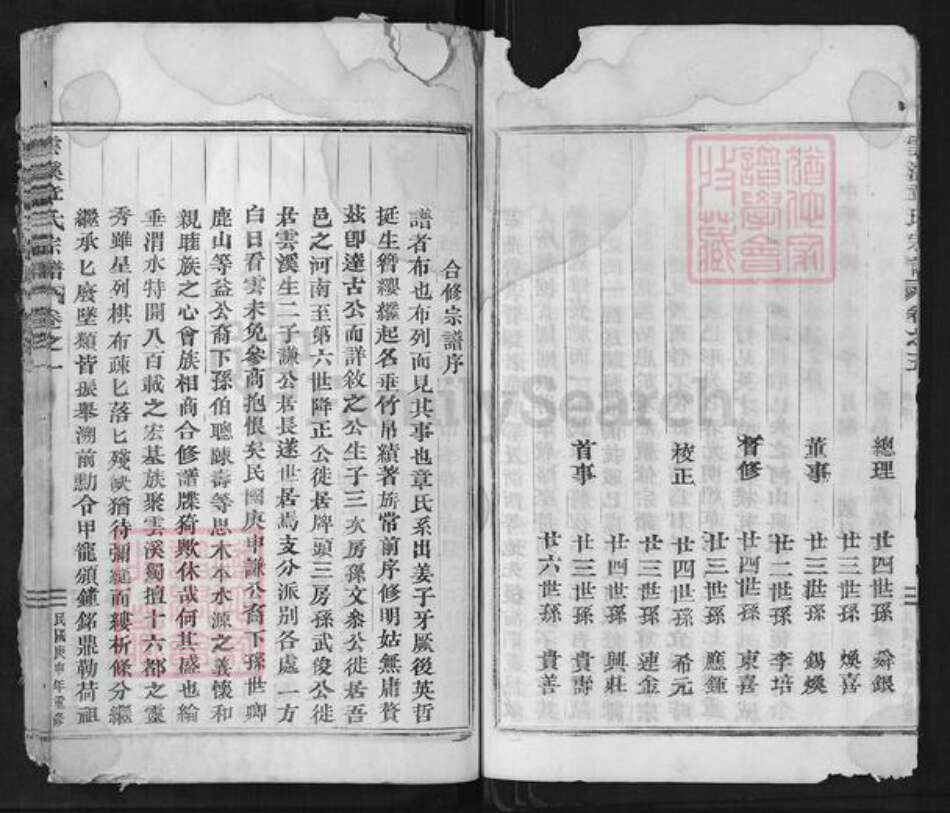 總理 廿四世孫 舜銀
廿三世孫 煥喜
董事 廿三世孫 錫煥
廿二世孫 李培
督修 廿四世孫 東喜
廿三世孫 應鍾
校正 廿四世孫 希元
廿三世孫 連金
廿四世孫 興莊
首事 廿三世孫 貴壽
廿六世孫 貴善
合修宗譜序
譜者布也布列而見其事也章氏系出姜子牙厥後英哲
挺生簪纓繼起名垂竹帛績著旂常前序修明姑無庸贅
茲即達古公而詳敘之公生子三次房孫文叅公徙居吾
邑之河南至第六世降正公徙居牌頭三房孫武俊公徙
居雲溪生二子謙公居長遂世居焉支分派別各處一方
白日看雲未免參商抱恨矣民國庚申謙公裔下孫世卿
鹿山等益公裔下孫伯聰陳壽等思木本水源之義懷和
親睦族之心會族相商合修譜牒猗歟休哉何其盛也綸
垂渭水特開八百載之宏基族聚雲溪獨擅十六都之靈
秀雖星列棋布疎匕落匕殘缺猶待彌縫而縷析條分繼
繼承匕廢墜類皆振舉溯前勳令甲龍頒鐘銘鼎勒荷祖
雲溪章氏宗譜 卷之一
民國庚申年重修
猶他家譜學會收藏